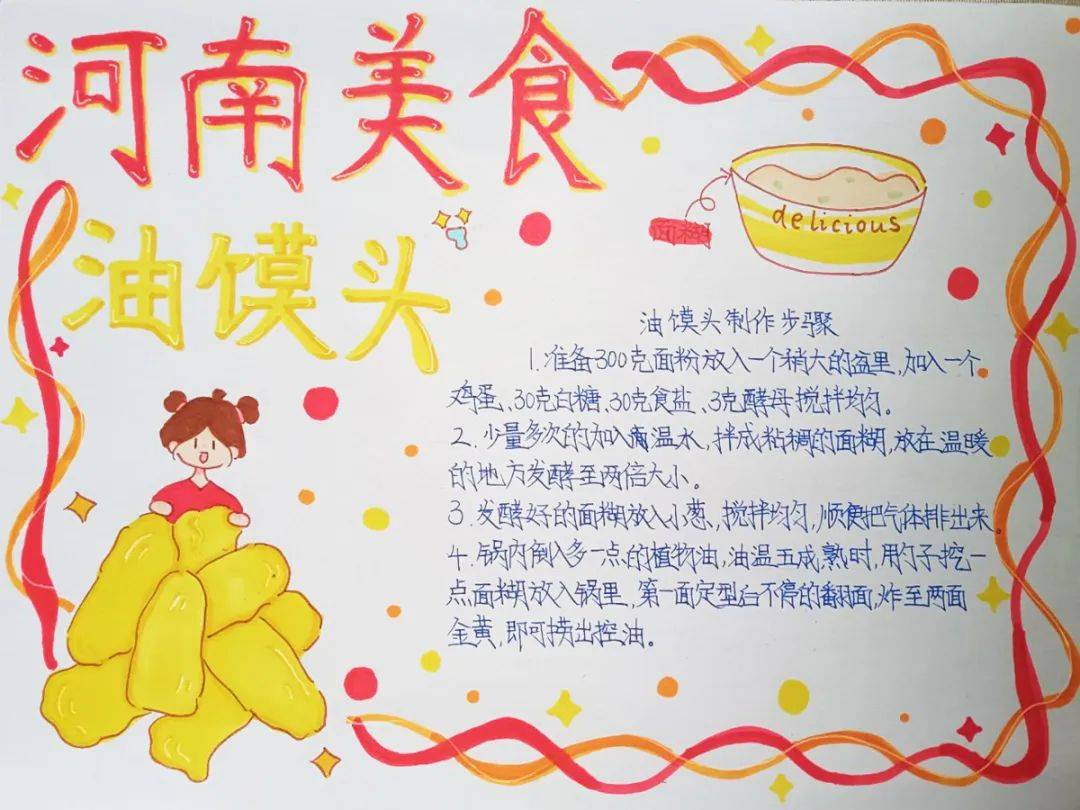 河南美食
油馍头
delicious
面糊
油馍头制作步骤
1.准备300克面粉放入一个稍大的盆里,加入一个
鸡蛋、30克白糖、30克食盐、3克酵母搅拌均匀。
2.少量多次的加入温水,拌成粘稠的面糊,放在温暖
的地方发酵至两倍大小。
3.发酵好的面糊放入小葱,搅拌均匀,顺便把气体排出来。
4.锅内倒入多一点的植物油,油温五成熟时,用勺子挖一
点面糊放入锅里,第一面定型后不停的翻面,炸至两面
金黄,即可捞出控油。